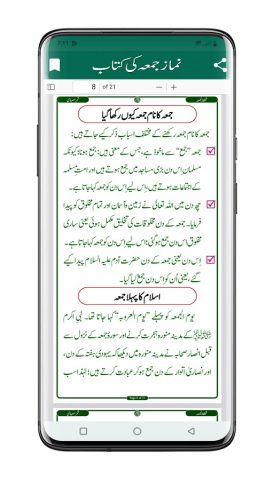 7:11
نماز جمعہ کی کتاب
8 of 21
جمعہ کا نام جمعہ کیوں رکھا گیا
جمعہ کا نام جمعہ رکھنے کے مختلف اسباب ذکر کیے جاتے ہیں:
جمعہ "جمع" سے ماخوذ ہے، جس کے معنی ہیں: جمع ہونا؛ کیونکہ
مسلمان اِس دن بڑی مساجد میں جمع ہوتے ہیں اور امت مسلمہ
کے اجتماعات ہوتے ہیں، اِس لیے اِس دن کو جمعہ کہا جاتا ہے۔
چھ دن میں اللہ تعالیٰ نے زمین و آسمان اور تمام مخلوق کو پیدا
فرمایا۔ جمعہ کے دن مخلوقات کی تخلیق مکمل ہوئی یعنی ساری
مخلوق اس دن جمع ہو گئی؛ اس لیے اِس دن کو جمعہ کہا جاتا ہے۔
اِس دن یعنی جمعہ کے دن حضرت آدم علیہ السلام پیدا کیے
گئے، یعنی اُن کو اس دن جمع کیا گیا۔
اسلام کا پہلا جمعہ
یوم الجمعہ کو پہلے "یوم العروبہ" کہا جاتا تھا۔ نبی اکرم
ﷺ کے مدینہ منورہ ہجرت کرنے اور سورۂ جمعہ کے نزول سے
قبل انصار صحابہ نے مدینہ منورہ میں دیکھا کہ یہودی ہفتہ کے دن،
اور نصاریٰ اتوار کے دن جمع ہو کر عبادت کرتے ہیں؛ لہٰذا سب